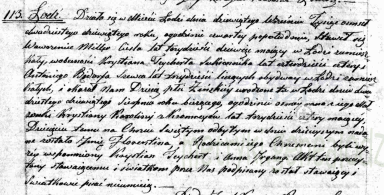 113. Łodź. Działo się w Mieście Łodzi dnia dziewiątego Września Tysiąc osmset
dwudziestego dziewiątego roku, o godzinie czwartej popołudniu. Stawił się
Wawrzeniec Cieśla lat trzydzieści dziewięć maiący w Łodzi zamiesz-
kały, w obecności Krystiana Teycherta Sukiennika lat czterdzieści cztery
Szewca lat trzydzieści liczących obydwóch w Łodzi zamiesz-
kałych, i okazał Nam Dziecię płci Żeńskiej urodzone tu w Łodzi dnia dwu-
dziestego dziewiątego Sierpnia roku bieżącego, o godzinie z iego Mał-
żonki Krystyny Karoliny z lat trzydzieści trzy maiącey.
Dziecięciu temu na Chrzcie Świętym odbytym w dniu dzisieyszym nada-
ne zostało Imie Florentina, a Rodzicami iego Chrzestnemi byli wy-
żey wspomniony Krystian Teychert i Anna Akt ten przeczy-
tany stawaiącemu i świadkom przez Nas podpisany został stawaiący i
świadkowie pisać nieumieią.